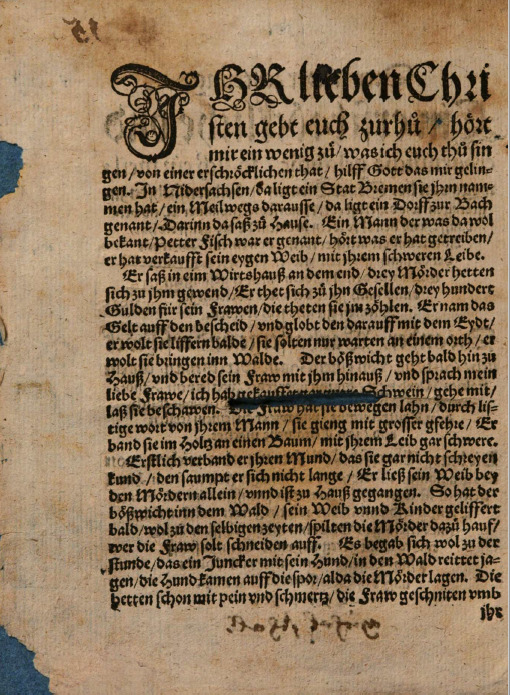 IHR lieben Chri
sten gebt euch zurhů / hört
mir ein wenig zů / was ich euch thů sin
gen / von einer erschröcklichen that / hilff Gott das mir gelin-
gen. In Nidersachsen / da ligt ein Stat Bremen sie jhrn nam-
men hat / ein Meil wegs darausse / da ligt ein Dorff zur Bach
genant / Darinn da saß zů Hause. Ein Mann der was da wol
bekant / Petter Fisch war er genant / hört was er hat getreiben /
er hat verkaufft sein eygen Weib / mit jhrem schweren Leibe.
Er saß in eim Wirtshauß an dem end / drey Mörder hetten
sich zu jhm gewend / Er thet sich zů jhn Gesellen / drey hundert
Gulden für sein Frawen / die theten sie jm zöhlen. Er nam das
Gelt auff den bescheid / vnd globt den darauff mit dem Eydt /
er wolt sie liffern balde / sie solten nur warten an einem orth / er
wolt sie bringen inn Walde. Der bößwicht geht bald hin zů
Hauß / vnd bered sein Fraw mit jhm hinauß / vnd sprach mein
liebe Frawe / ich hab Schwein / gehe mit /
laß sie beschawen. Die Fraw hat sie bewegen lahn / durch lis-
tige wort von jhrem Mann / sie gieng mit grosser gfehre / Er
band sie im Holtz an einen Baum / mit jhrem Leib gar schwere.
Erstlich verband er jhren Mund / das sie gar nicht schreyen
kund / den saumpt er sich nicht lange / Er ließ sein Weib bey
den Mördern allein / vnnd ist zů Hauß gegangen. So hat der
bößwicht inn dem Wald / sein Weib vnnd Kinder geliffert
bald / wol zů den selbigen zeyten / spilten die Mörder dazů hauf /
wer die Fraw solt schneiden auff. Es begab sich wol zu der
stunde / das ein Juncker mit sein Hund / in den Wald reittet ja-
gen / die Hund kamen auff die spor / alda die Mörder lagen. Die
hetten schon mit pein vnd schmertz / die Fraw geschniten vmb
jhr